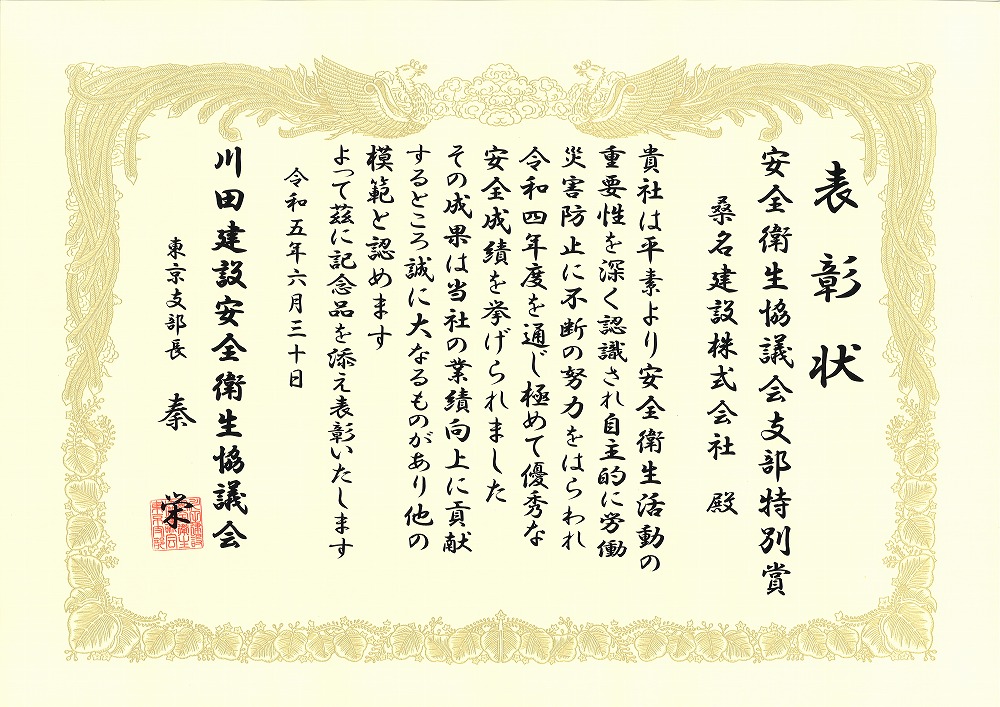 表彰状
安全衛生協議会支部特別賞
桑名建設株式会社 殿
貴社は平素より安全衛生活動の
重要性を深く認識され自主的に労働
災害防止に不断の努力をはらわれ
令和四年度を通じ極めて優秀な
安全成績を挙げられました
その成果は当社の業績向上に貢献
するところ誠に大なるものがあり他の
模範と認めます
よって茲に記念品を添え表彰いたします
令和五年六月三十日
川田建設安全衛生協議会
東京支部長 秦 栄